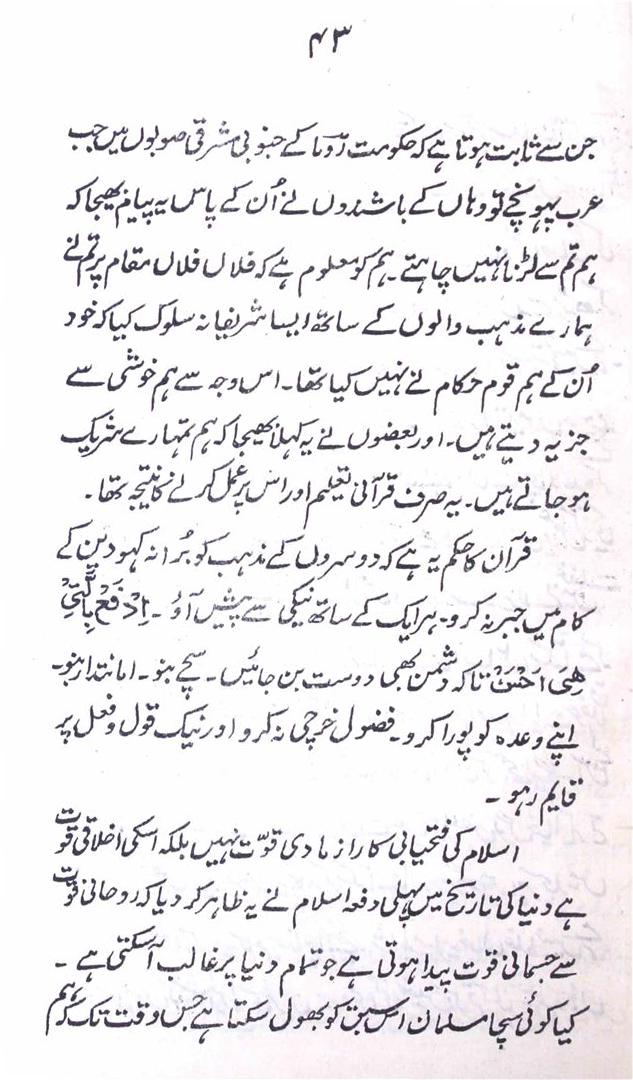 ۴۳
جن سے ثابت ہوتا ہے کہ حکومت روما کے جنوبی مشرقی صوبوں میں جب
عرب پہونچے تو وہاں کے باشندوں نے اُن کے پاس یہ پیام بھیجا کہ
ہم تم سے لڑنا نہیں چاہتے۔ ہم کو معلوم ہے کہ فلاں فلاں مقام پر تم نے
ہمارے مذہب والوں کے ساتھ ایسا شریفانہ سلوک کیا کہ خود
اُن کے ہم قوم حکام نے نہیں کیا تھا۔ اس وجہ سے ہم خوشی سے
جزیہ دیتے ہیں۔ اور بعضوں نے یہ کہلا بھیجا کہ ہم تمہارے شریک
ہو جاتے ہیں۔ یہ صرف قرآنی تعلیم اور اس پر عمل کرنے کا نتیجہ تھا۔
قرآن کا حکم یہ ہے کہ دوسروں کے مذہب کو بُرا نہ کہو دین کے
کام میں جبر نہ کرو۔ ہر ایک کے ساتھ نیکی سے پیش آؤ۔ اِدْفَعْ بِالَّتِیْ
ھِیَ اَحْسَنْ تاکہ دشمن بھی دوست بن جائیں۔ سچے بنو۔ امانتدار بنو۔
اپنے وعدہ کو پورا کرو۔ فضول خرچی نہ کرو اور نیک قول و فعل پر
قایم رہو۔
اسلام کی فتحیابی کا راز مادی قوّت نہیں بلکہ اسکی اخلاقی قوت
ہے دنیا کی تاریخ میں پہلی دفعہ اسلام نے یہ ظاہر کر دیا کہ روحانی قوت
سے جسمانی قوت پیدا ہوتی ہے جو تمام دنیا پر غالب آسکتی ہے۔
کیا کوئی سچا مسلمان اس سبق کو بھول سکتا ہے جس وقت تک کہ ہم